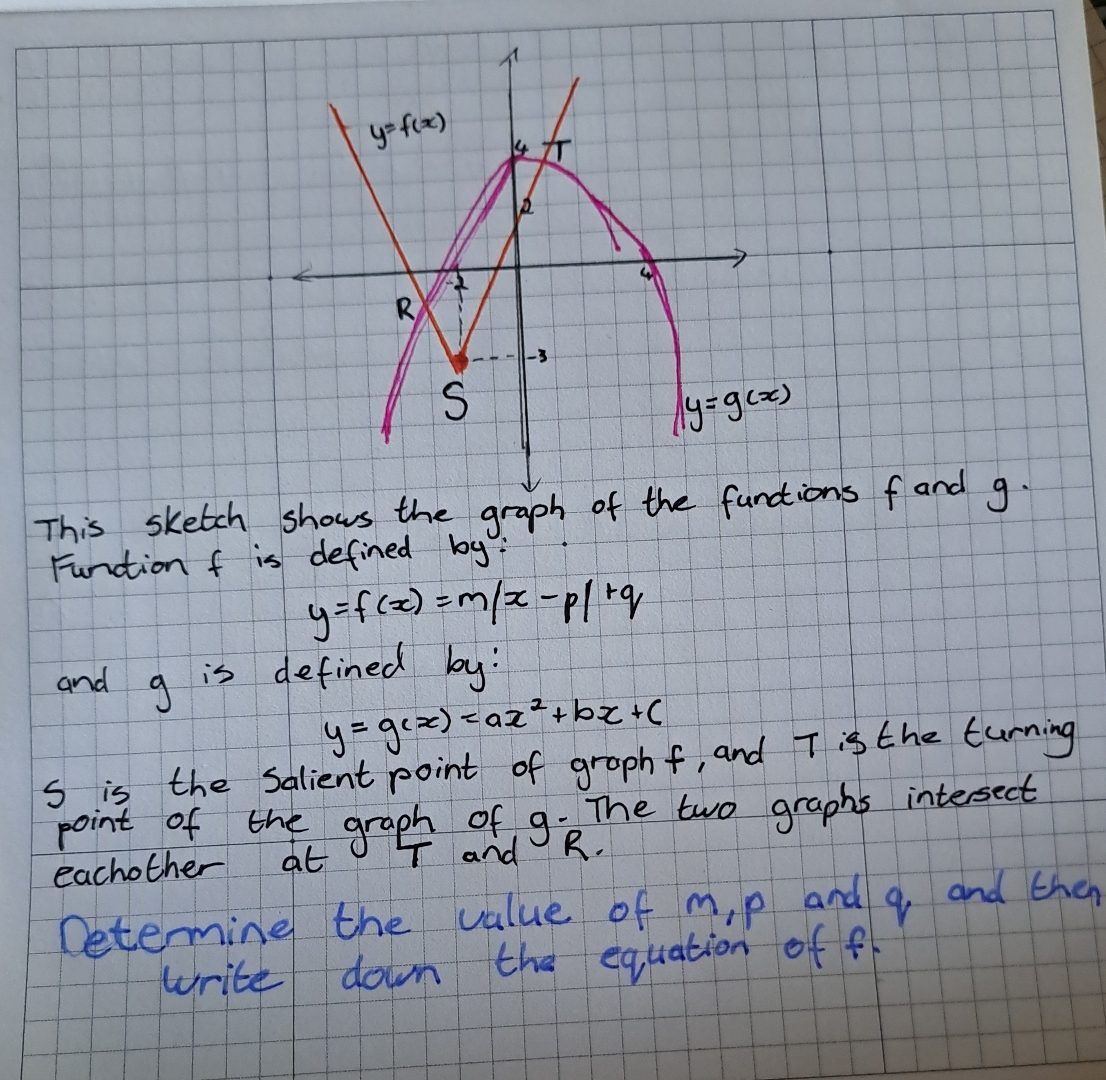 y=f(x)
4
T
2
-2
4
R
-3
S
y=g(x)
This sketch shows the graph of the functions f and g.
Function f is defined by:
y=f(x)=m|x-p|+q
and g is defined by:
y=g(x)=ax²+bx+c
S is the salient point of graph f, and T is the turning
point of the graph of g. The two graphs intersect
eachother at T and R.
Determine the value of m, p and q, and then
write down the equation of f.